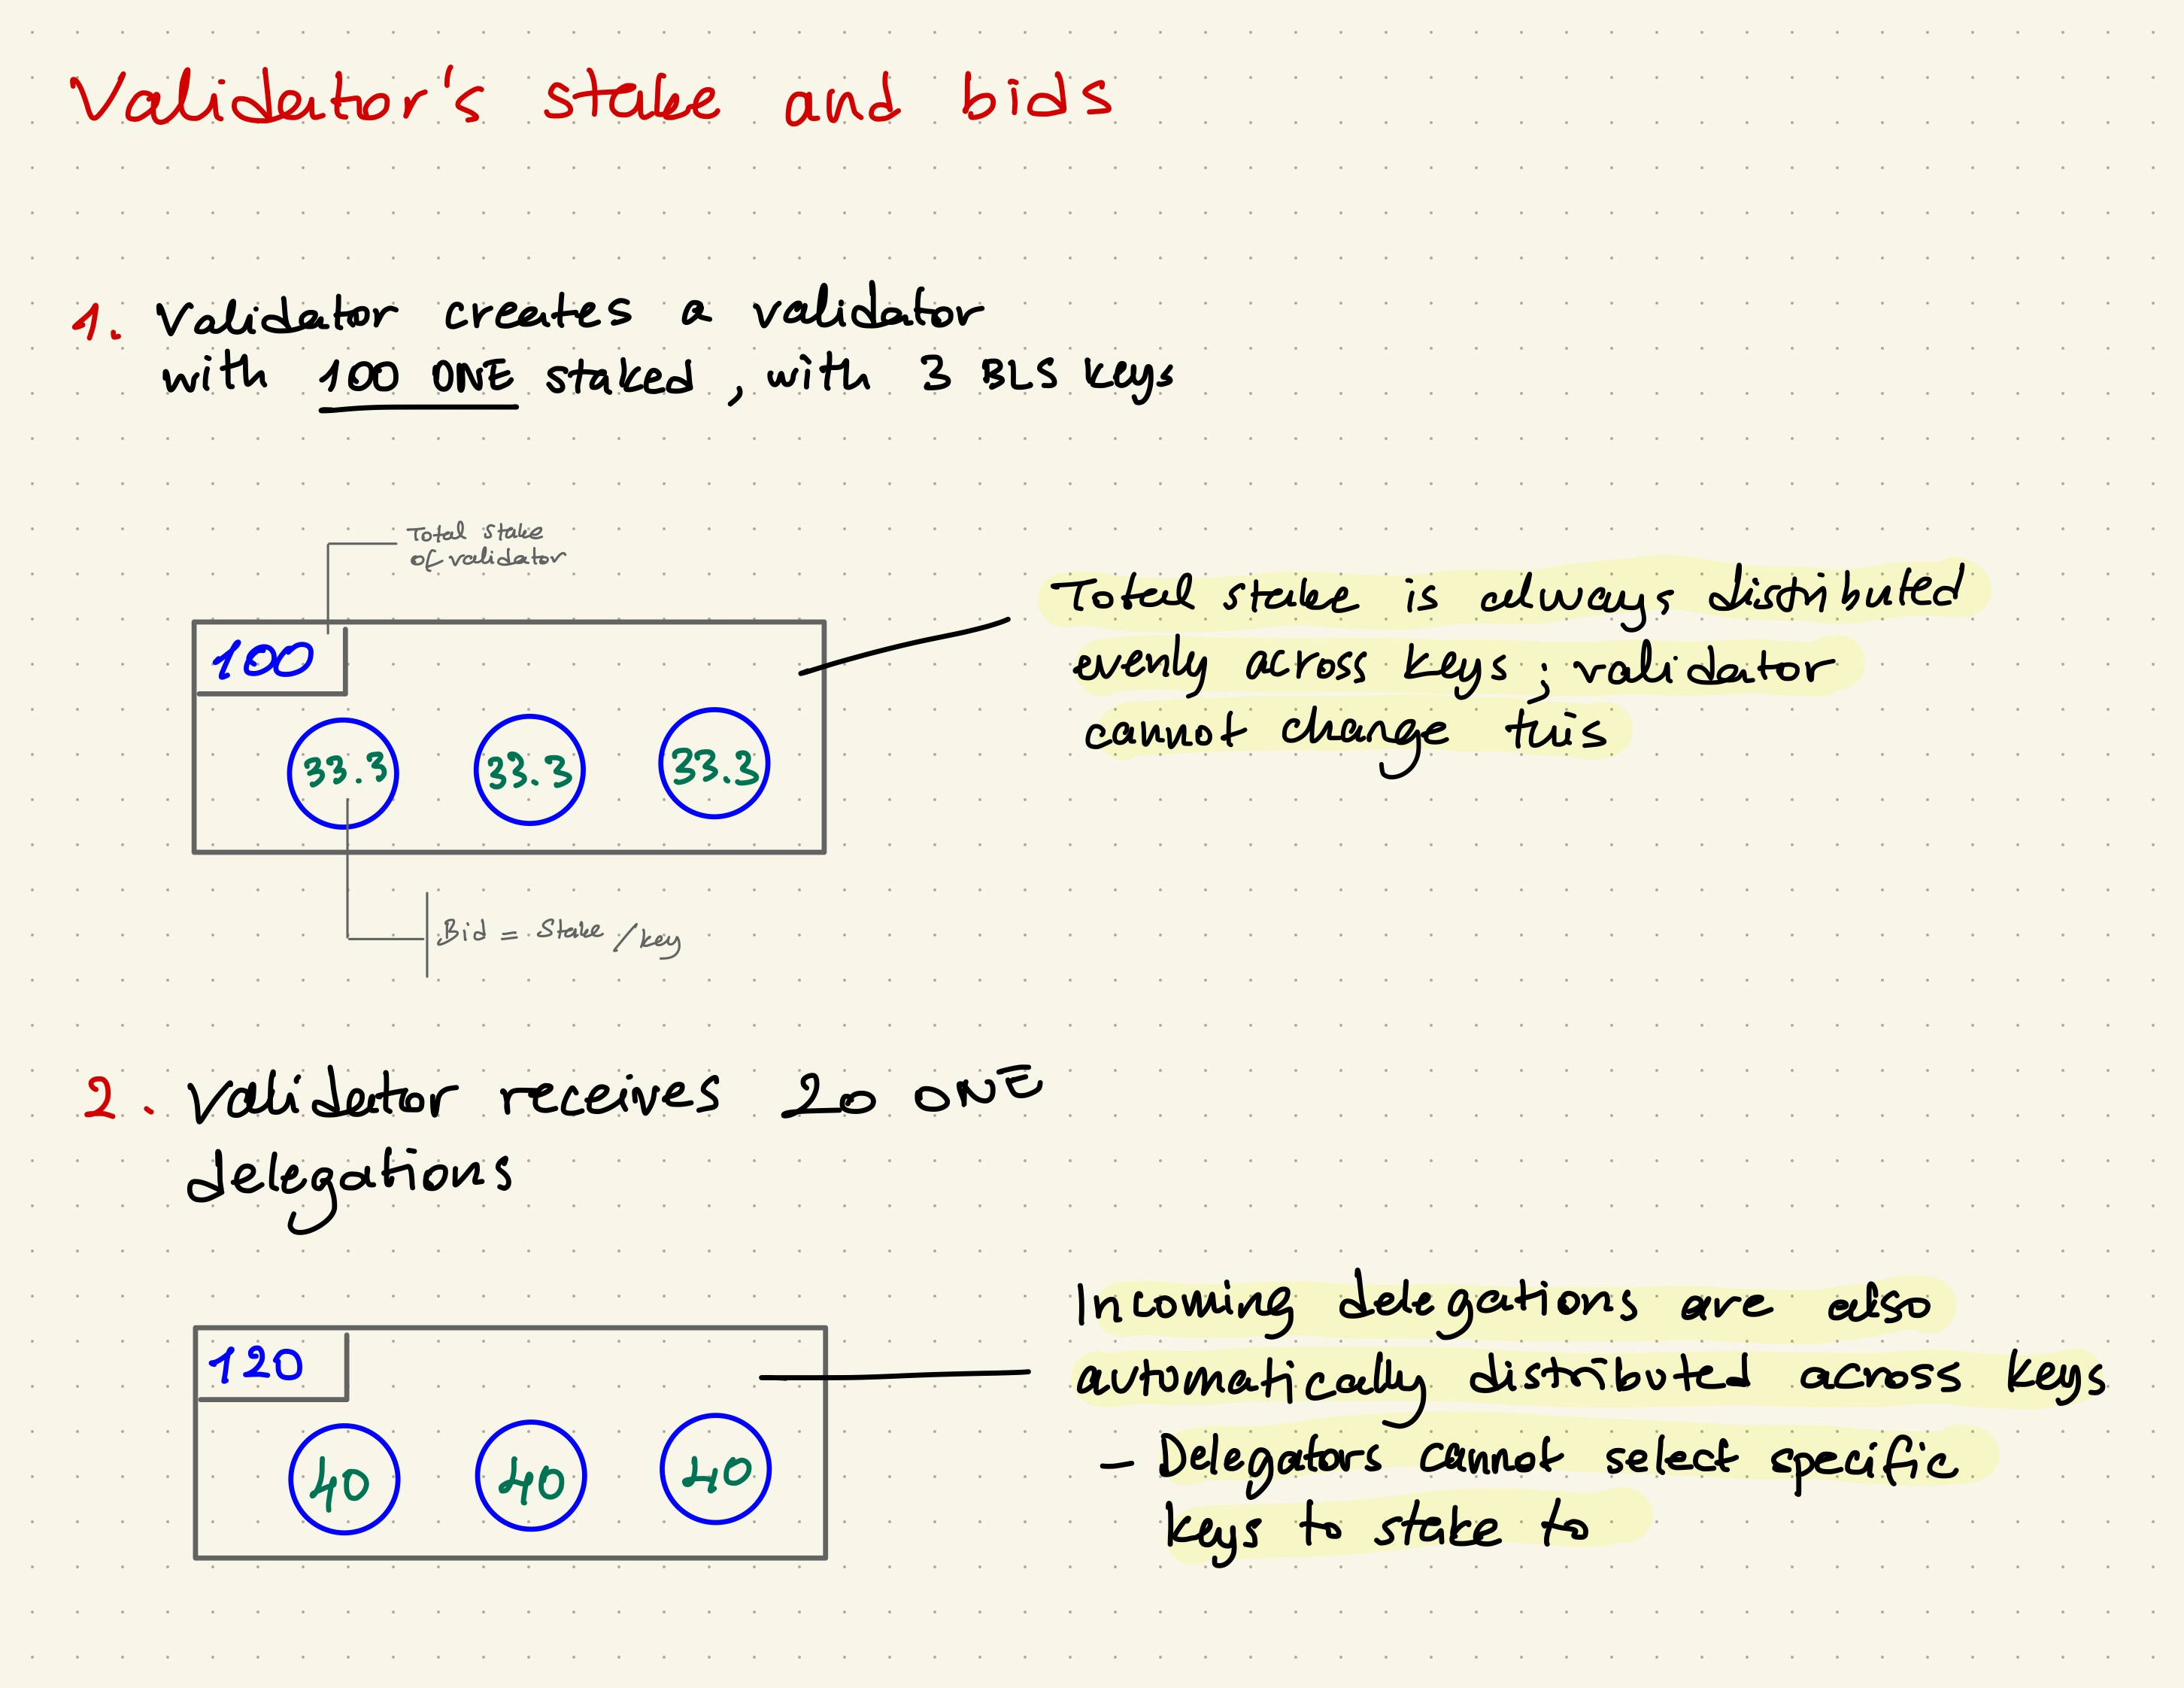 Validator's stake and bids
1. Validator creates a validator
with 100 ONE staked, with 3 BLS keys
Total stake
of validator
100
33.3 33.3 33.3
Bid = Stake / key
Total stake is always distributed
evenly across keys; validator
cannot change this
2. Validator receives 20 ONE
delegations
120
40 40 40
Incoming delegations are also
automatically distributed across keys
- Delegators cannot select specific
keys to stake to